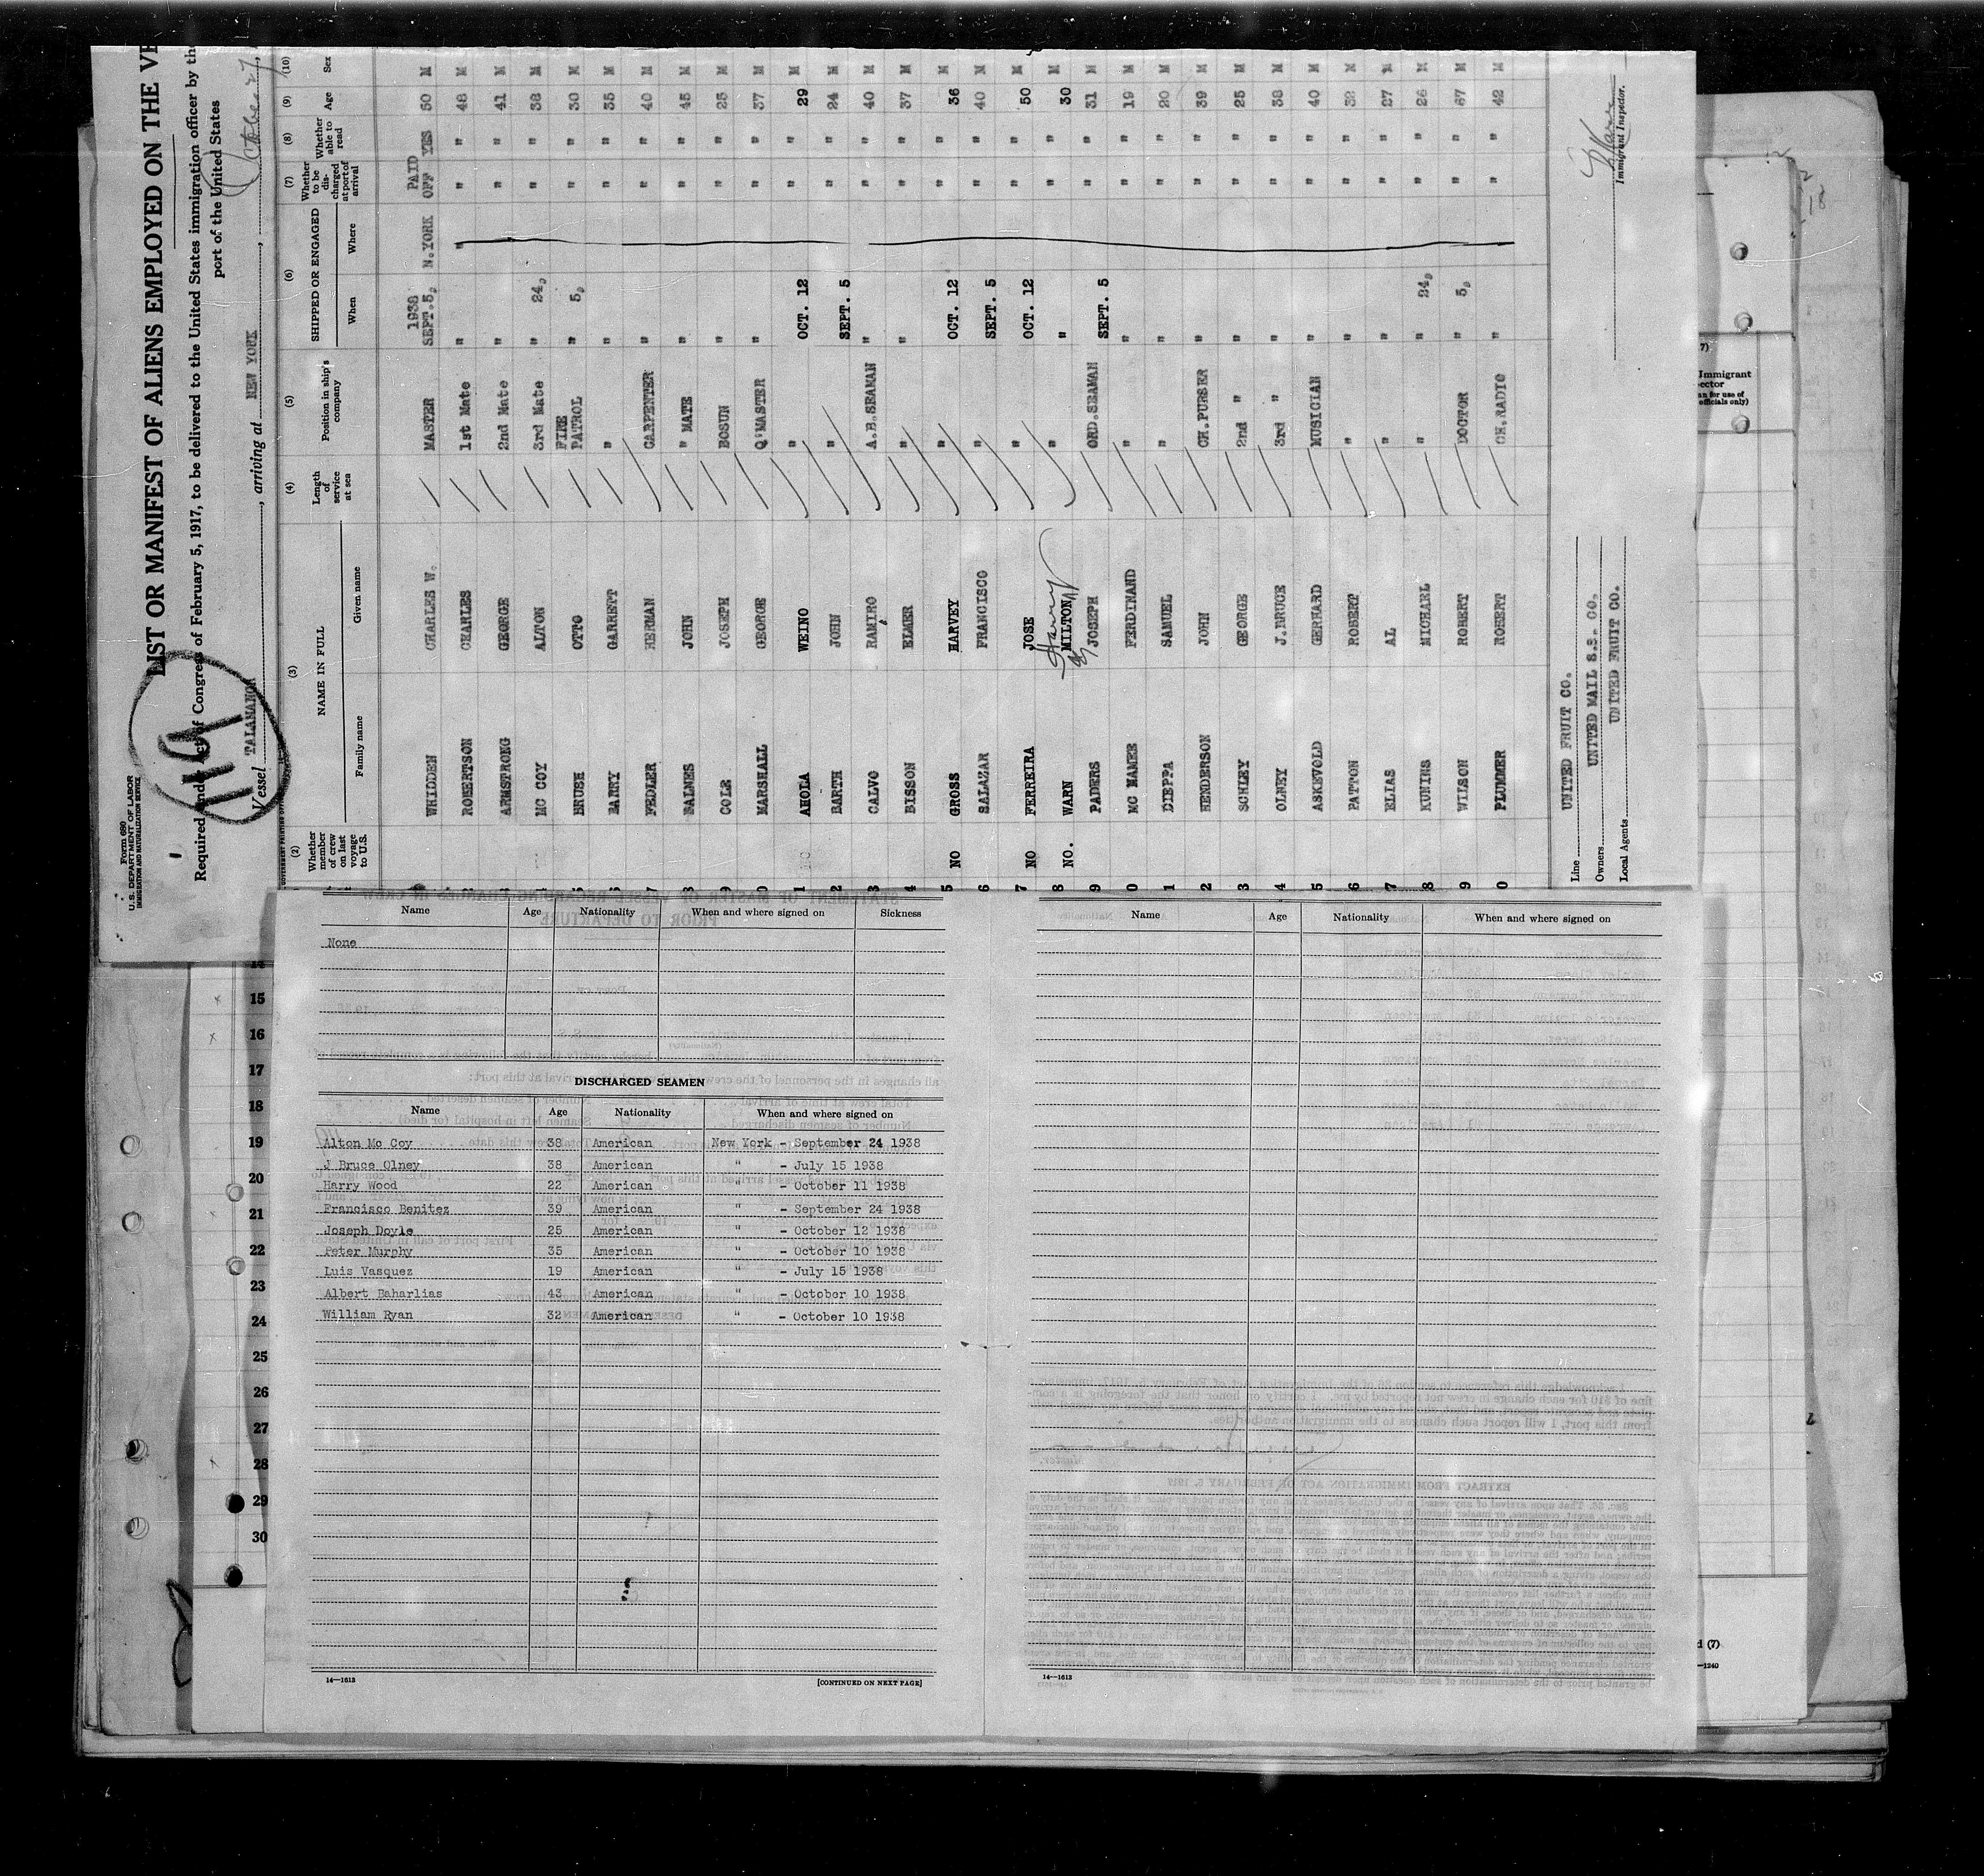 Form 680
U.S. DEPARTMENT OF LABOR
IMMIGRATION AND NATURALIZATION SERVICE
119
LIST OR MANIFEST OF ALIENS EMPLOYED ON THE VE
Required under Act of Congress of February 5, 1917, to be delivered to the United States immigration officer by the
port of the United States
Vessel TALAMANCA, arriving at NEW YORK, October 27,
(2) (3) (4) (5) (6) (7) (8) (9) (10)
Whether member of crew on last voyage to U.S. NAME IN FULL Family name Given name Length of service at sea Position in ship's company SHIPPED OR ENGAGED When Where Whether to be discharged at port of arrival Whether able to read Age Sex
WHIDDEN CHARLES W. MASTER 1938 SEPT. 5, N.YORK PAID OFF YES 50 M
2 ROBERTSON CHARLES 1st Mate " " " " 48 M
3 ARMSTRONG GEORGE 2nd Mate " " " 41 M
4 MC COY ALTON 3rd Mate " 24, " " 38 M
5 BRUSH OTTO FIRE PATROL " 5, " " 30 M
6 BARRY GARRETT " " " " 35 M
7 FEDLER HERMAN CARPENTER " " " 40 M
8 BALNES JOHN " MATE " " " 45 M
9 COLE JOSEPH BOSUN " " " 25 M
0 MARSHALL GEORGE Q'MASTER " " " 37 M
1 AHOLA WEINO " OCT. 12 " " 29 M
2 BARTH JOHN " SEPT. 5 " " 24 M
3 CALVO RAMIRO A.B.SEAMAN " " " 40 M
4 BISSON ELMER " " " " 37 M
5 NO GROSS HARVEY " OCT. 12 " " 36 M
6 SALAZAR FRANCISCO " SEPT. 5 " " 40 M
7 NO FERREIRA JOSE " OCT. 12 " " 50 M
8 NO. WARN MILTON Harry " " " " 30 M
9 PADERS JOSEPH ORD.SEAMAN SEPT. 5 " " 31 M
0 MC NAMEE FERDINAND " " " " 19 M
1 DIEPPA SAMUEL " " " " 20 M
2 HENDERSON JOHN CH.PURSER " " " 39 M
3 SCHLEY GEORGE 2nd " " " " 25 M
4 OLNEY J.BRUCE 3rd " " " " 38 M
5 ASKEVOLD GERHARD MUSICIAN " " " 40 M
6 PATTON ROBERT " " " " 32 M
7 ELIAS AL " " " " 27 M
8 KUNINS MICHAEL " " 24, " " 26 M
9 WILSON ROBERT DOCTOR " 5, " " 67 M
0 PLUMMER ROBERT CH.RADIO " " " 42 M
Line UNITED FRUIT CO.
Owners UNITED MAIL S.S. CO.
Local Agents UNITED FRUIT CO.
Immigrant Inspector.
7)
Immigrant
ector
an for use of
officials only)
Name Age Nationality When and where signed on Sickness
None
DISCHARGED SEAMEN
Name Age Nationality When and where signed on
Alton Mc Coy 38 American New York - September 24 1938
J Bruce Olney 38 American " - July 15 1938
Harry Wood 22 American " - October 11 1938
Francisco Benitez 39 American " - September 24 1938
Joseph Doyle 25 American " - October 12 1938
Peter Murphy 35 American " - October 10 1938
Luis Vasquez 19 American " - July 15 1938
Albert Baharlias 43 American " - October 10 1938
William Ryan 32 American " - October 10 1938
14—1613 [CONTINUED ON NEXT PAGE]
Name Age Nationality When and where signed on
14—1613
14
15
16
17
18
19
20
21
22
23
24
25
26
27
28
29
30
d (7)
—1240